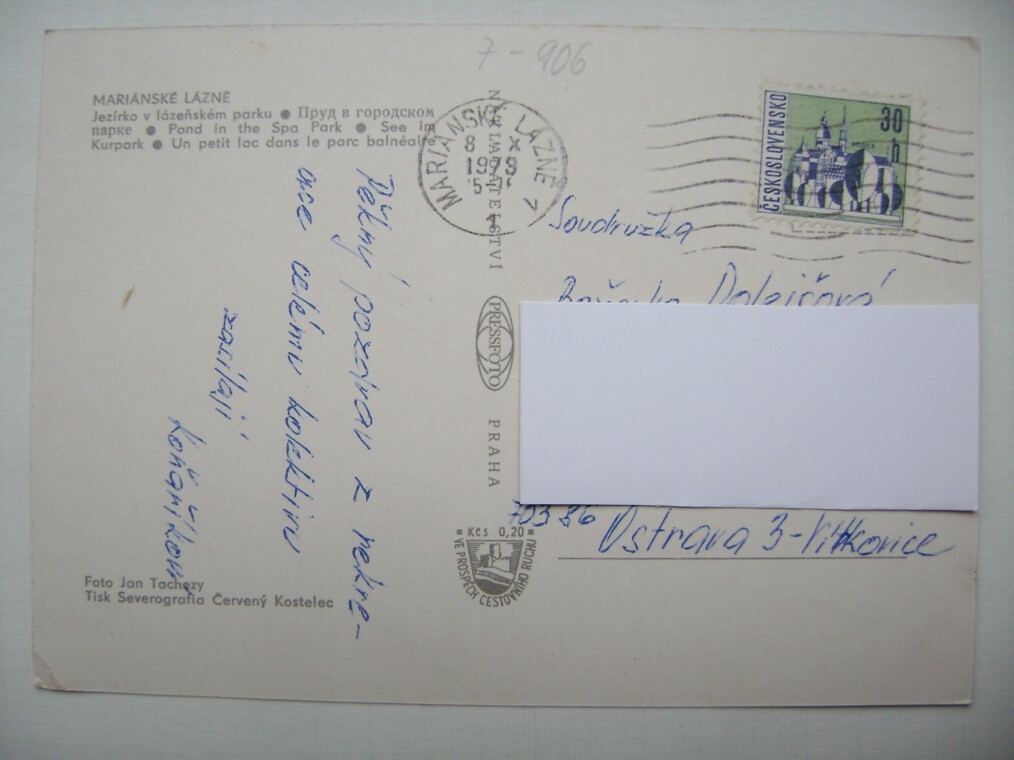 7-906
MARIÁNSKÉ LÁZNĚ
Jezírko v lázeňském parku ● Пруд в городском
парке ● Pond in the Spa Park ● See im
Kurpark ● Un petit lac dans le parc balnéaire
Pěkný pozdrav z rekre-
ace celému kolektivu
zasílají
Foto Jan Tachezy
Tisk Severografia Červený Kostelec
NAKLADATELSTVI
PRESSFOTO
PRAHA
Kčs 0,20
VE PROSPĚCH CESTOVNÍHO RUCHU
MARIÁNSKÉ LÁZNĚ 7
8 X
1973
ČESKOSLOVENSKO
30 h
Soudružka
Dolejšová
70386 Ostrava 3-Vítkovice